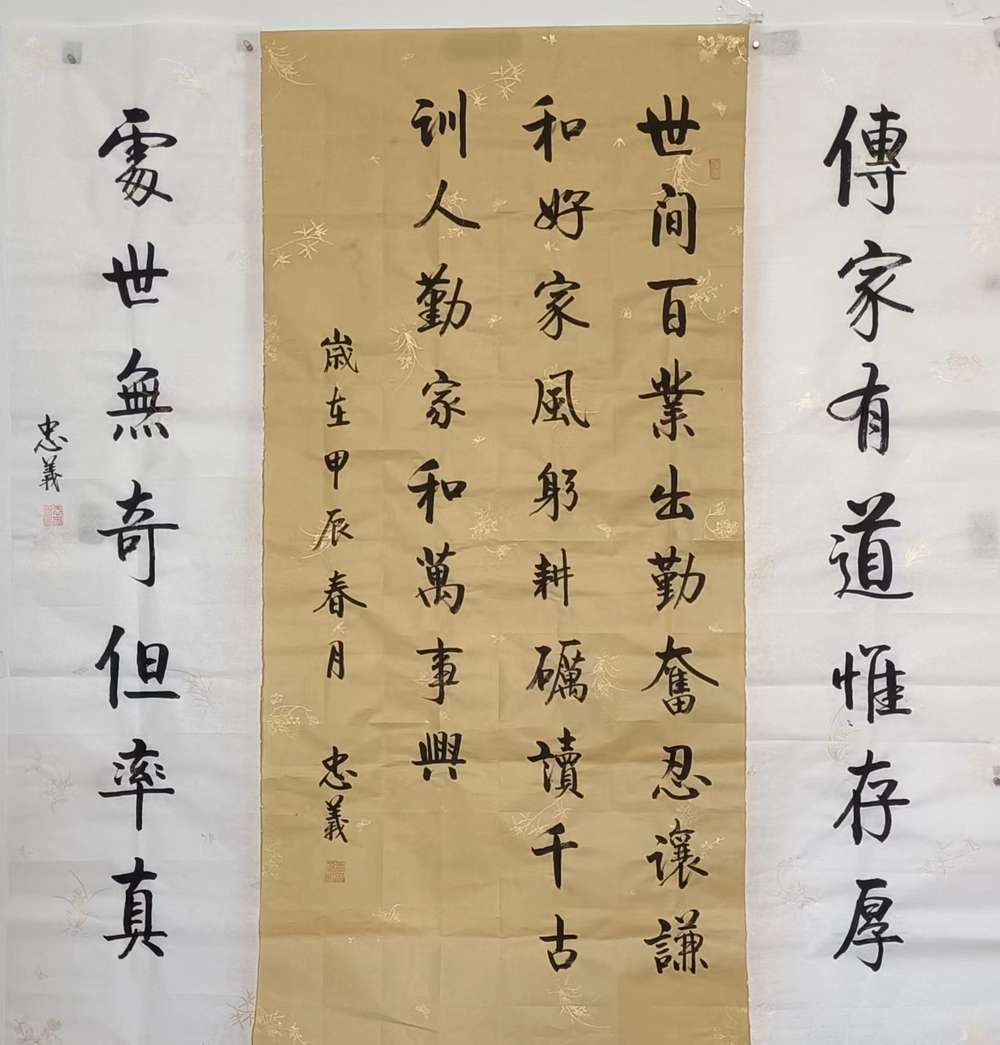 傳家有道惟存厚
世间百業出勤奮忍讓謙
和好家風躬耕礪讀千古
訓人勤家和萬事興
歲在甲辰春月 忠義
處世無奇但率真
忠義